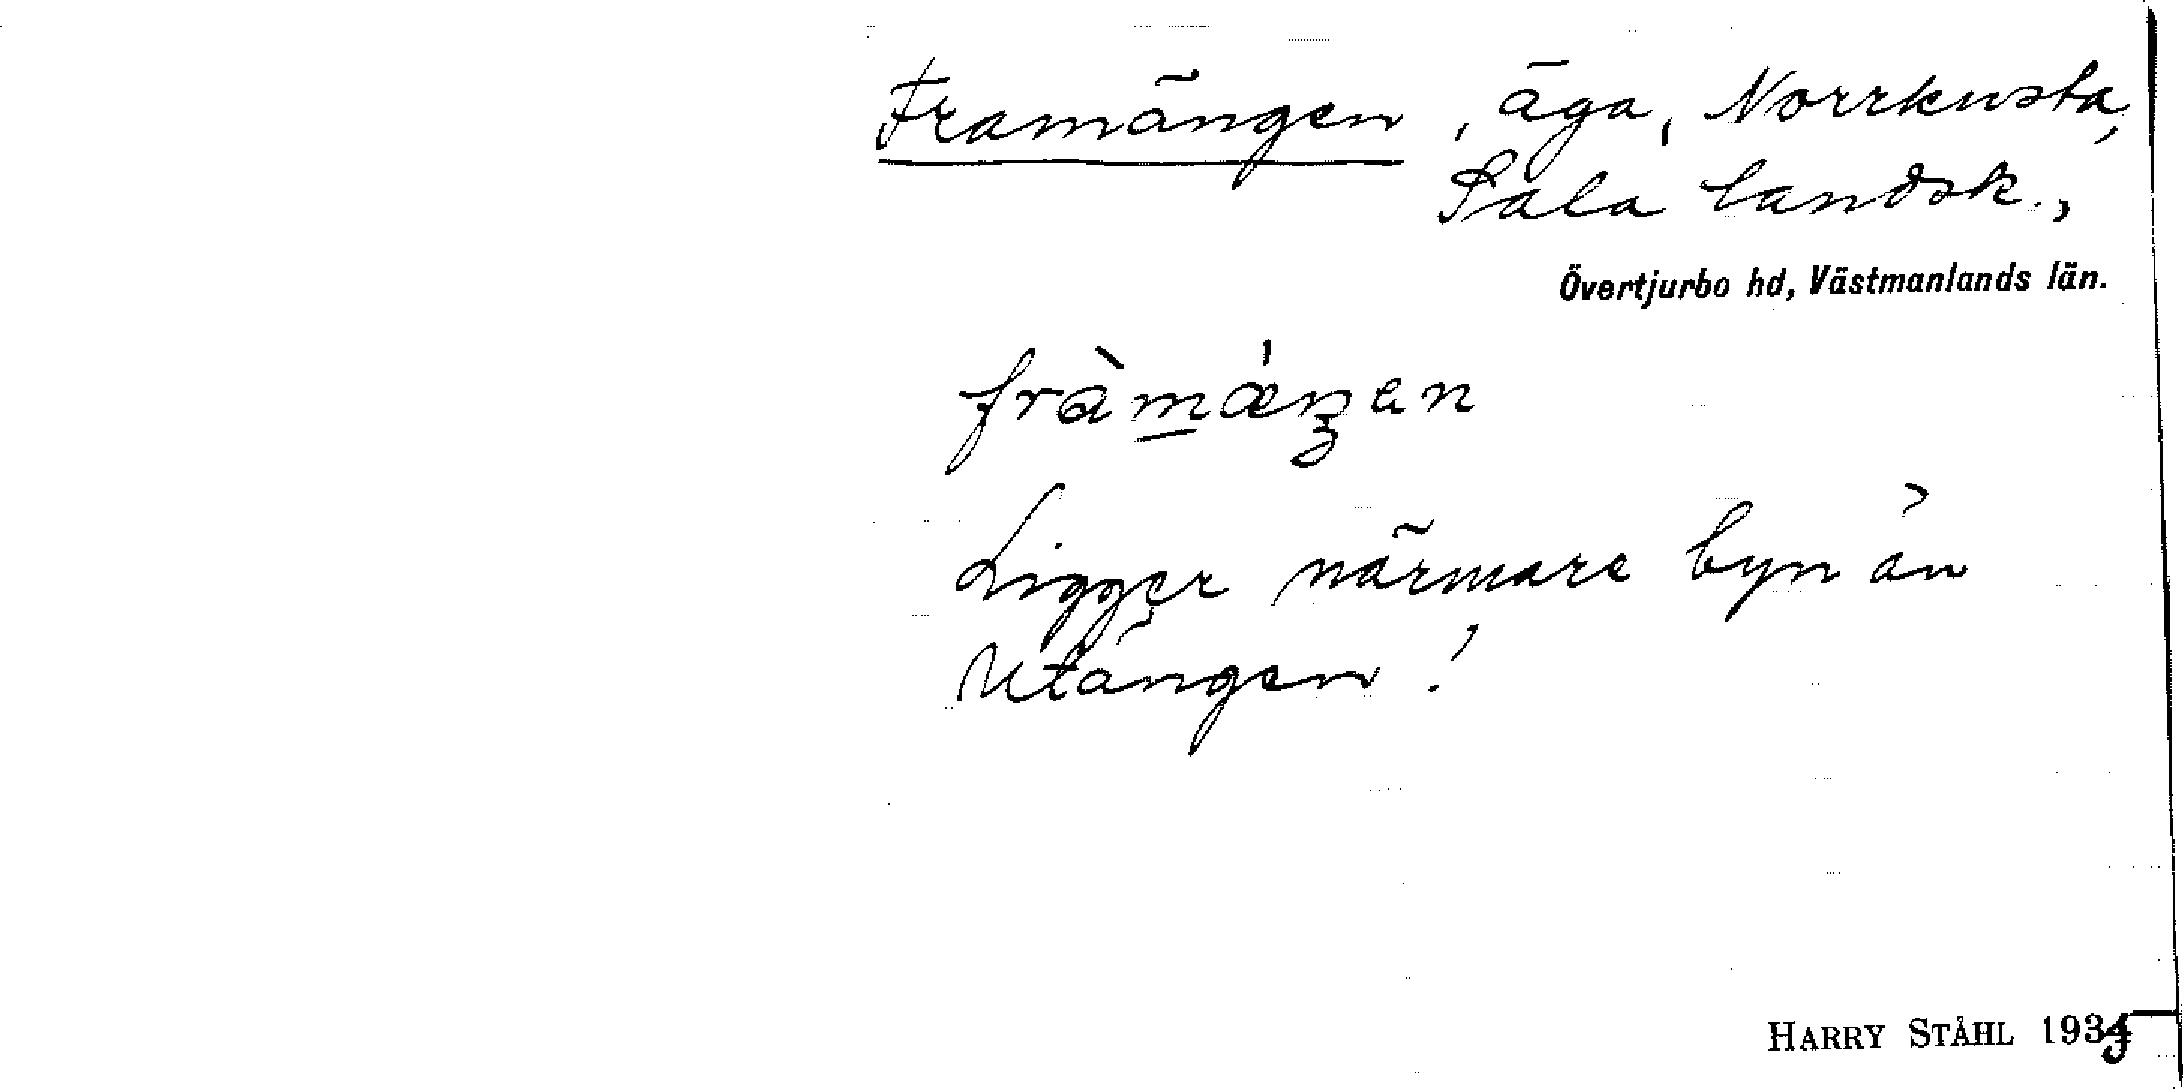 Framängen, äga, Norrknsta,
Sala landsk.,
Övertjurbo hd, Västmanlands län.
fràmǽŋen
Ligger närmare byn än
Utängen!
HARRY STÅHL 1935